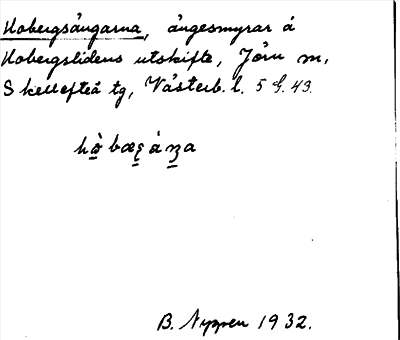 Hobergsångarna, ångesmyrar å
Hobergslidens utskifte, Jörn sn,
Skellefteå tg, Västerb. l. 5 G. 43.
B. Nyppen 1932.